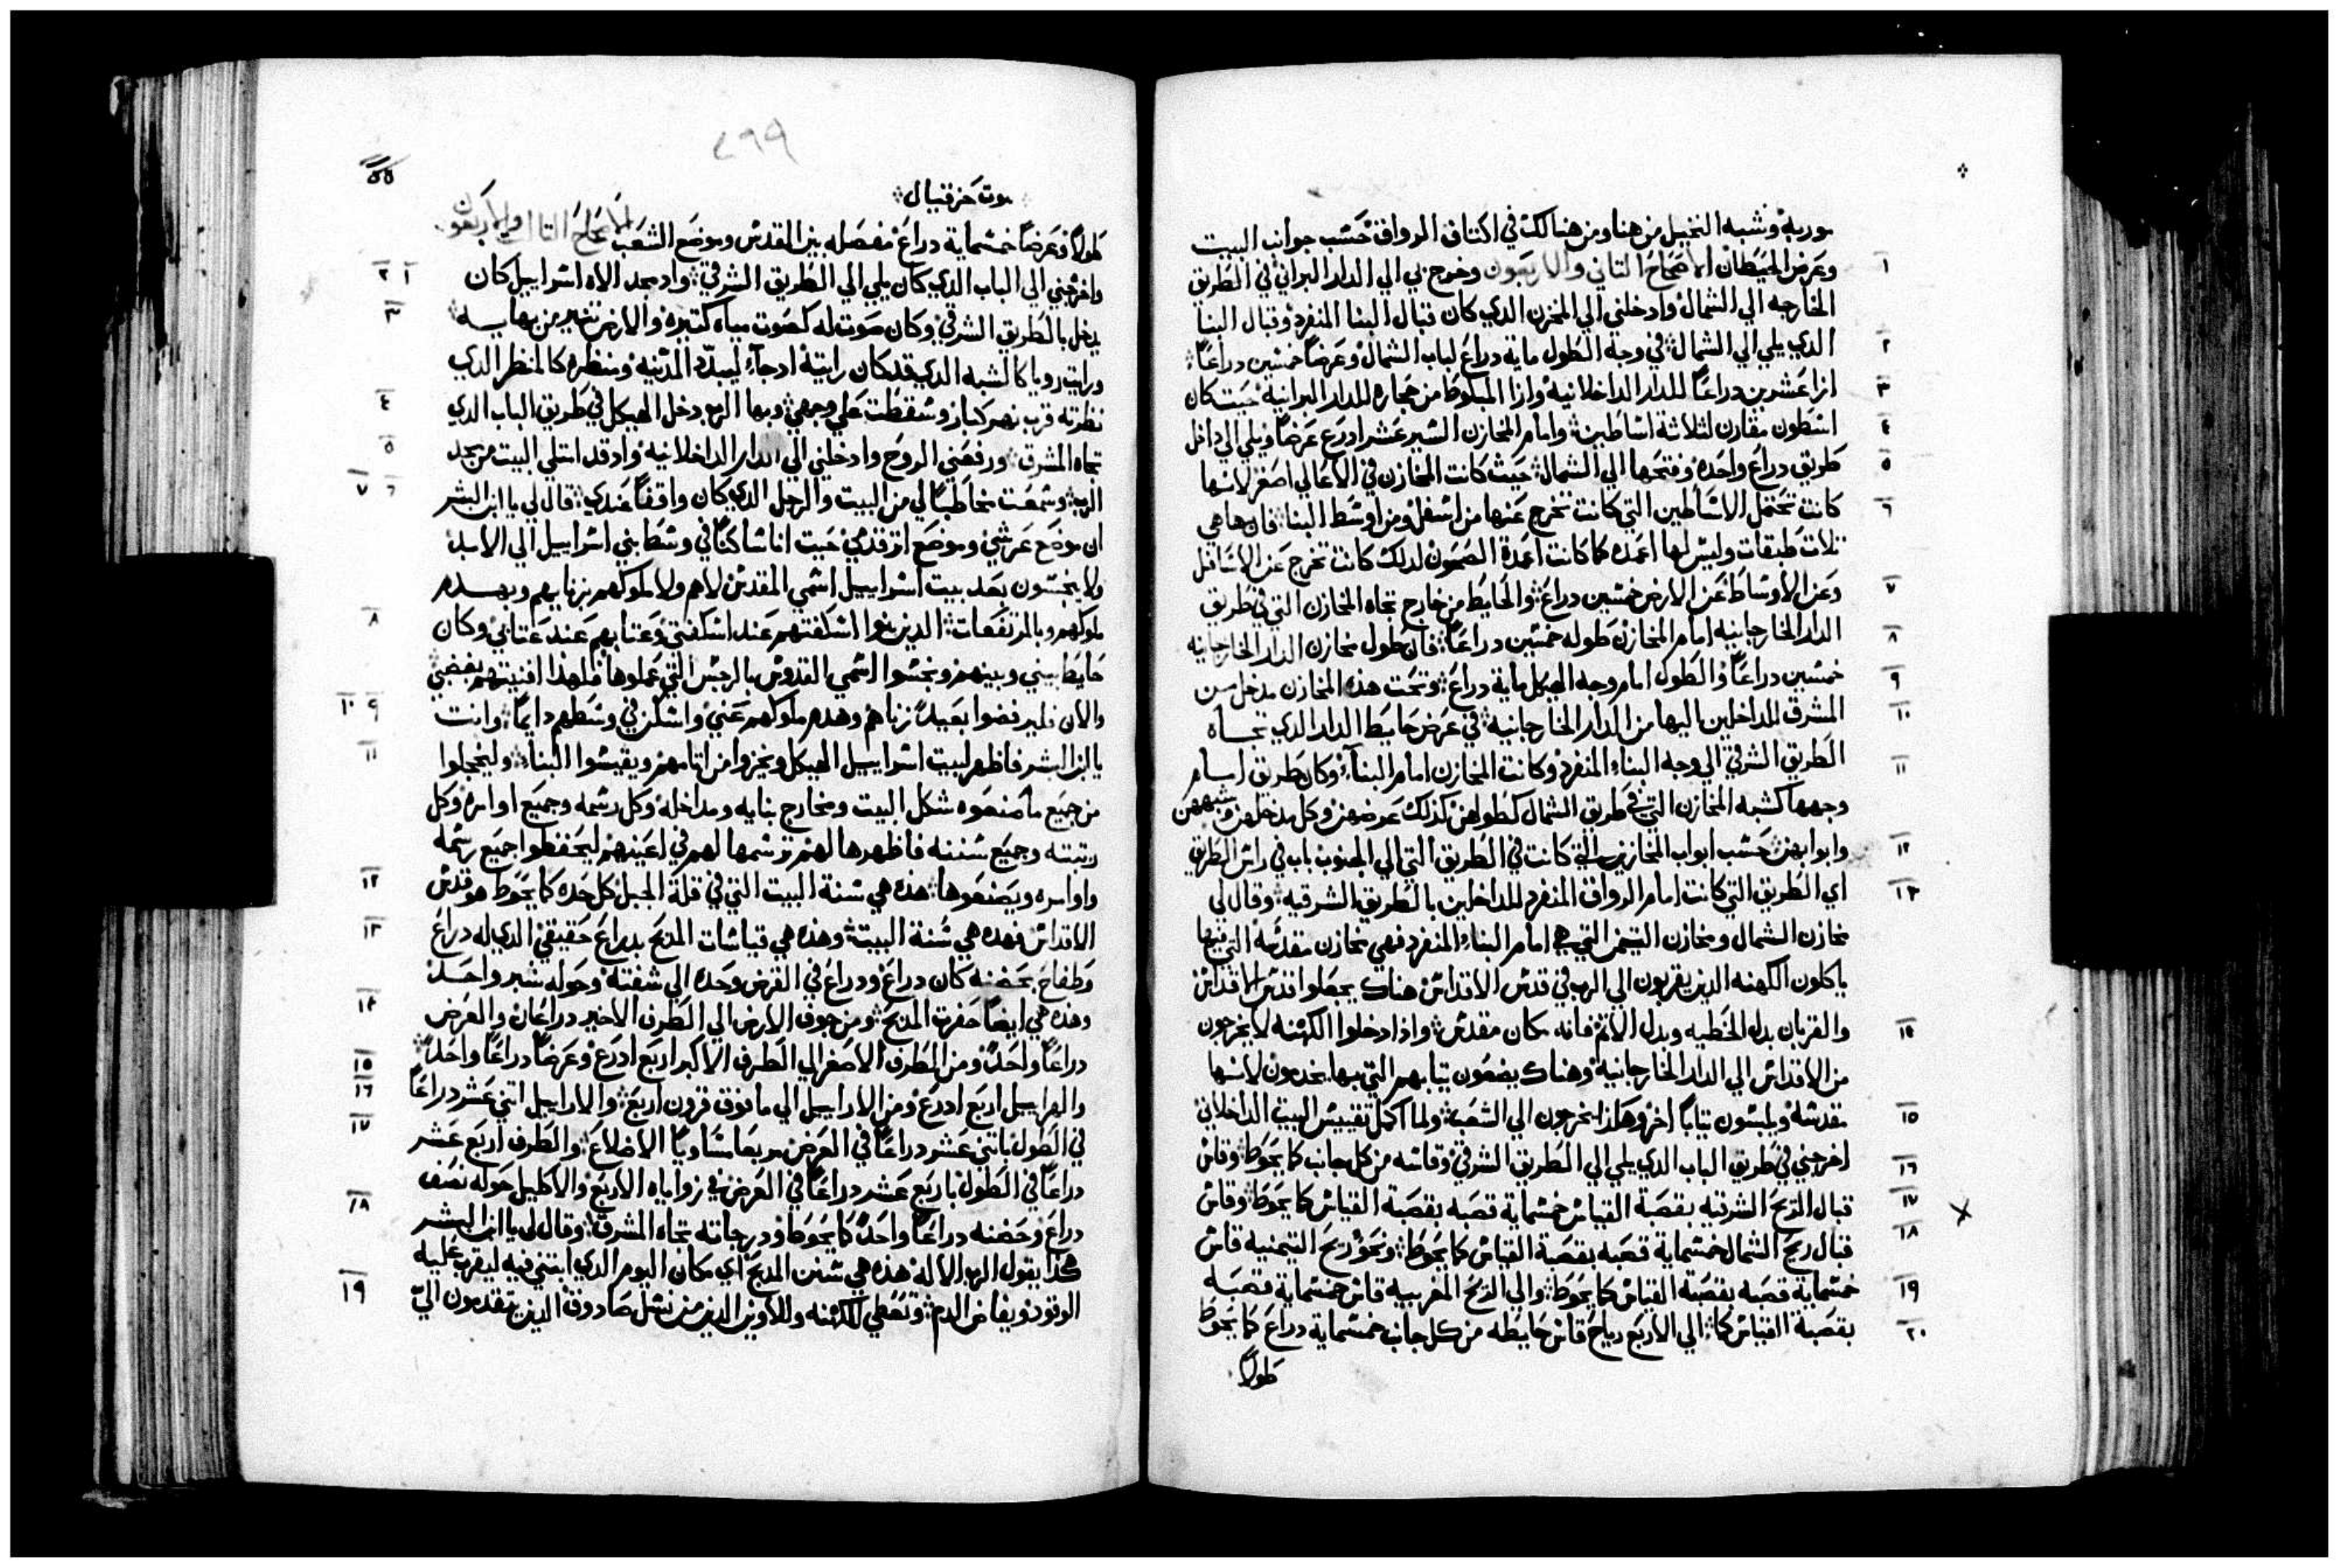 موربة وشبه النخيل من هنا ومن هنالك في اكتاف الرواق حسب جوانب البيت
وعرض الحيطان الاصحاح التاني والاربعون وخرج بي الي الدار البراني في الطريق
الخارجه الي الشمال وادخلني الي المخزن الدي كان قبال البنا المنفرد وقبال البنا
الدي يلي الي الشمال في وجه الطول ماية دراع لباب الشمال وعرضاً خمسين دراعاً
ازا عشرين دراعاً للدار الداخلانية وازا المبلوط من حجاره للدار البرانية حيت كان
اسطون مقارن لتلاتة اساطين وامام المخازن السير عشر ادرع عرضاً ويلي الي داخل
طريق دراع واحده وفتحها الي الشمال حيث كانت المخازن في الاعالي اصغر لانها
كانت تحتمل الاساطين التي كانت تخرج عنها من اسفل ومن اوسط البنا فانها هي
تلات طبقات وليس لها اعمده كما كانت اعمدة الصحون لدلك كانت تخرج عن الاسافل
وعن الاوساط عن الارض خمسين دراع والحايط من خارج تجاه المخازن التي في طريق
الدار الخارجانيه امام المخازن طوله خمسين دراعاً فان طول مخازن الدار الخارجانيه
خمسين دراعاً والطول امام وجه الهيكل ماية دراع وتحت هده المخازن مدخل من
المشرق للداخلين اليها من الدار الخارجانية في عرض حايط الدار الدي تجاه
الطريق الشرقي الي وجه البناء المنفرد وكانت المخازن امام البناء وكان طريق امام
وجهها كشبه المخازن التي في طريق الشمال كطولهن كذلك عرضهن وكل مدخلهن وشبههن
وابوابهن حسب ابواب المخازن التي كانت في الطريق التي الي الجنوب باب في راس الطريق
اي الطريق التي كانت امام الرواق المنفرد للداخلين بالطريق الشرقيه وقال لي
مخازن الشمال ومخازن التيمن التي هي امام البناء المنفرد فهي مخازن مقدسة التي فيها
ياكلون الكهنه الدين يقربون الي الرب في قدس الاقداس هناك يجعلوا قدس الاقداس
والقربان بدل الخطيه وبدل الاتم فانه مكان مقدس واذا دخلوا الكهنه لا يخرجون
من الاقداس الي الدار الخارجانية وهناك يضعون تيابهم التي بها يخدمون لانها
مقدسة ويلبسون تياباً اخر وهكذا يخرجون الي الشعب ولما اكمل تقييس البيت الداخلاني
اخرجني في طريق الباب الدي يلي الي الطريق الشرقي وقاسه من كل جانب كما يحوط وقاس
قبال الريح الشرقيه بقصبة القياس خمسماية قصبه بقصبة القياس كما يحوط وقاس
قبال ريح الشمال خمسماية قصبه بقصبة القياس كما يحوط ونحو ريح التيمنيه قاس
خمسماية قصبه بقصبة القياس كما يحوط والي الريح المغربيه قاس خمسماية قصبه
بقصبة القياس كما الي الاربع رياح قاس حايطه من كل جانب خمسماية دراع كما يحوط
طولاً
٢٩٩
حزقيال
طولاً وعرضاً خمسماية دراع مفصله بين المقدس وموضع الشعب الاصحاح التالت والاربعون
واخرجني الي الباب الدي كان يلي الي الطريق الشرقي وادمجد الاه اسراييل كان
يدخل بالطريق الشرقي وكان صوت له كصوت مياه كتيره والارض تنير من بهايه
ورايت رويا كالشبه الدي قد كان رايتة ادجاء ليبدد المدينه ومنظره كالمنظر الدي
نظرته قرب نهر كبار وسقطت علي وجهي وبها الرب دخل الهيكل في طريق الباب الدي
تجاه المشرق ورفعني الروح وادخلني الي الدار الداخلانيه وادقد امتلي البيت من مجد
الرب وسمعت مخاطباً لي من البيت والرجل الدي كان واقفاً عندي قال لي يا ابن البشر
ان موضع عرشي وموضع اتر قدمي حيت انا ساكناً في وسط بني اسراييل الي الابد
ولا ينجسون بعد بيت اسراييل اسمي المقدس لاهم ولا ملوكهم بزناهم وبهدم
ملوكهم وبالمرتفعات الدين بنوا اسكفتهم عند اسكفتي وعتابهم عند عتابي وكان
حايط بيني وبينهم ونجسوا اسمي القدوس بالرجس التي عملوها فلهذا افنيتهم بغضبي
والان فليرفضوا بعيداً زناهم وهدم ملوكهم عني واسكن في وسطهم دايماً وانت
يا ابن البشر فاظهر لبيت اسراييل الهيكل ويخزوا من اتامهم ويقيسوا البناء وليخجلوا
من جميع ما صنعوه شكل البيت ومخارج بنايه ومداخله وكل رسمه وجميع اوامره وكل
رتبته وجميع سننه فاظهرها لهم ترسمها لهم في اعينهم ليحفظوا جميع رسمه
واوامره ويصنعوها هذه هي سنة البيت التي في قلة الجبل كل حده كما يحوط هو قدس
الاقداس فهده هي سنة البيت وهذه هي قياسات المدبح بدراع حقيقي الدي له دراع
وطفاح بحضنه كان دراع ودراع في العرض وحده الي شفته وحوله شبر واحد
وهذه هي ايضاً حفرت المدبح ومن جوف الارض الي الطرف الاخير دراعان والعرض
دراعاً واحداً ومن الطرف الاصغر الي الطرف الاكبر اربع ادرع وعرضاً دراعاً واحداً
والهراييل اربع ادرع ومن الاراييل الي ما فوق قرون اربع والاراييل اتني عشر دراعاً
في الطول باتني عشر دراعاً في العرض مربعاً متساوياً الاضلاع والطرف اربع عشر
دراعاً في الطول باربع عشر دراعاً في العرض في زواياه الاربع والاكليل حوله نصف
دراع وحضنه دراعاً واحداً كما يحوط ودرجاته تجاه المشرق وقال لي يا ابن البشر
هكذا يقول الرب الاله هذه هي سنن المدبح اي مكان اليوم الدي ابتني فيه ليقرب عليه
الوقود ويفاض الدم وتعطي للكهنه وللاويين الدين من نسل صادوق الدين يتقدمون الي